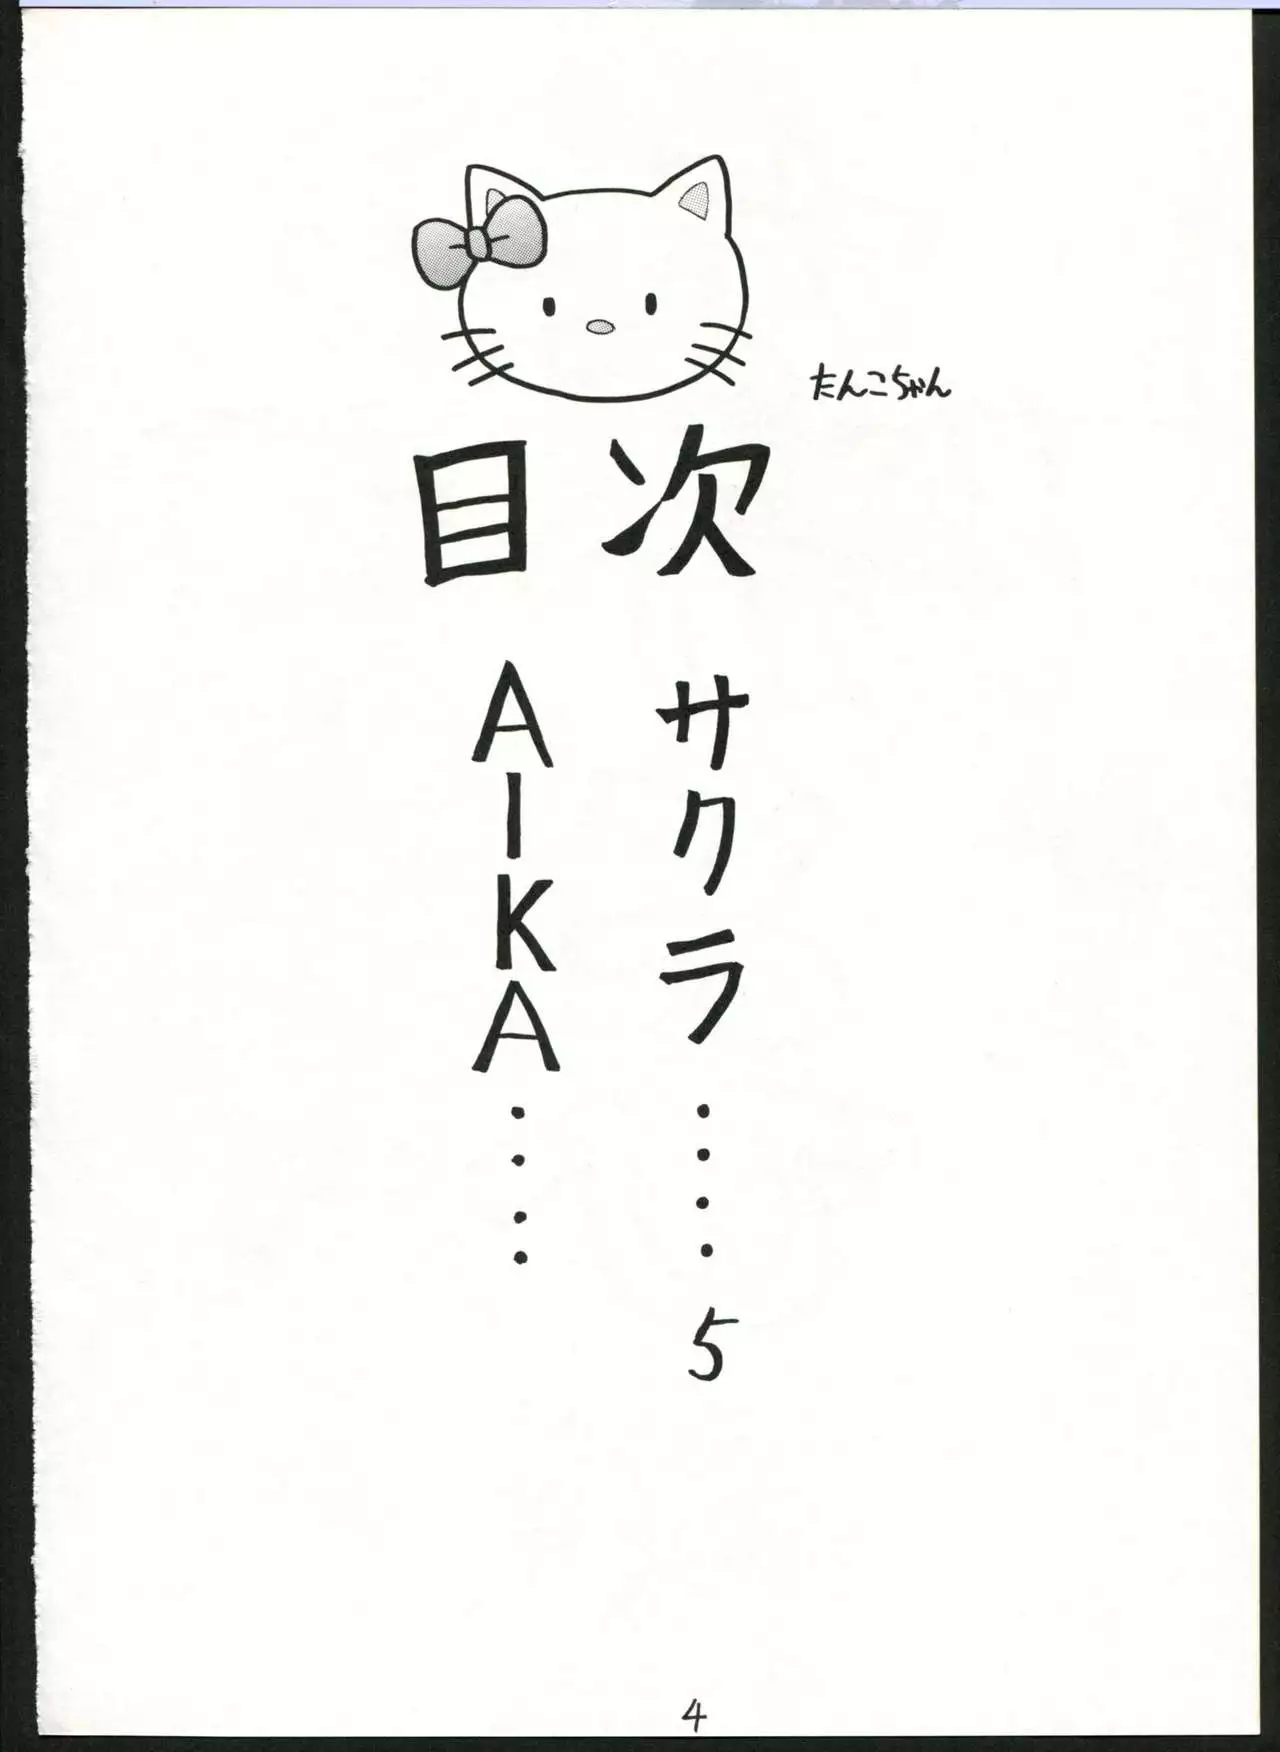 たんこちゃん
目次
サクラ····5
AIKA····
4